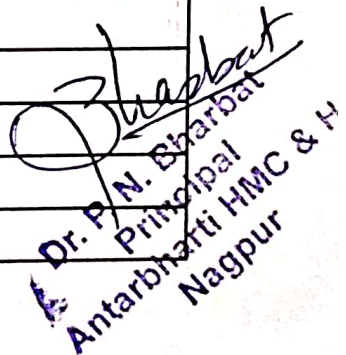 Dr. P. N. Bharbat
Principal
Antarbharti HMC & H
Nagpur